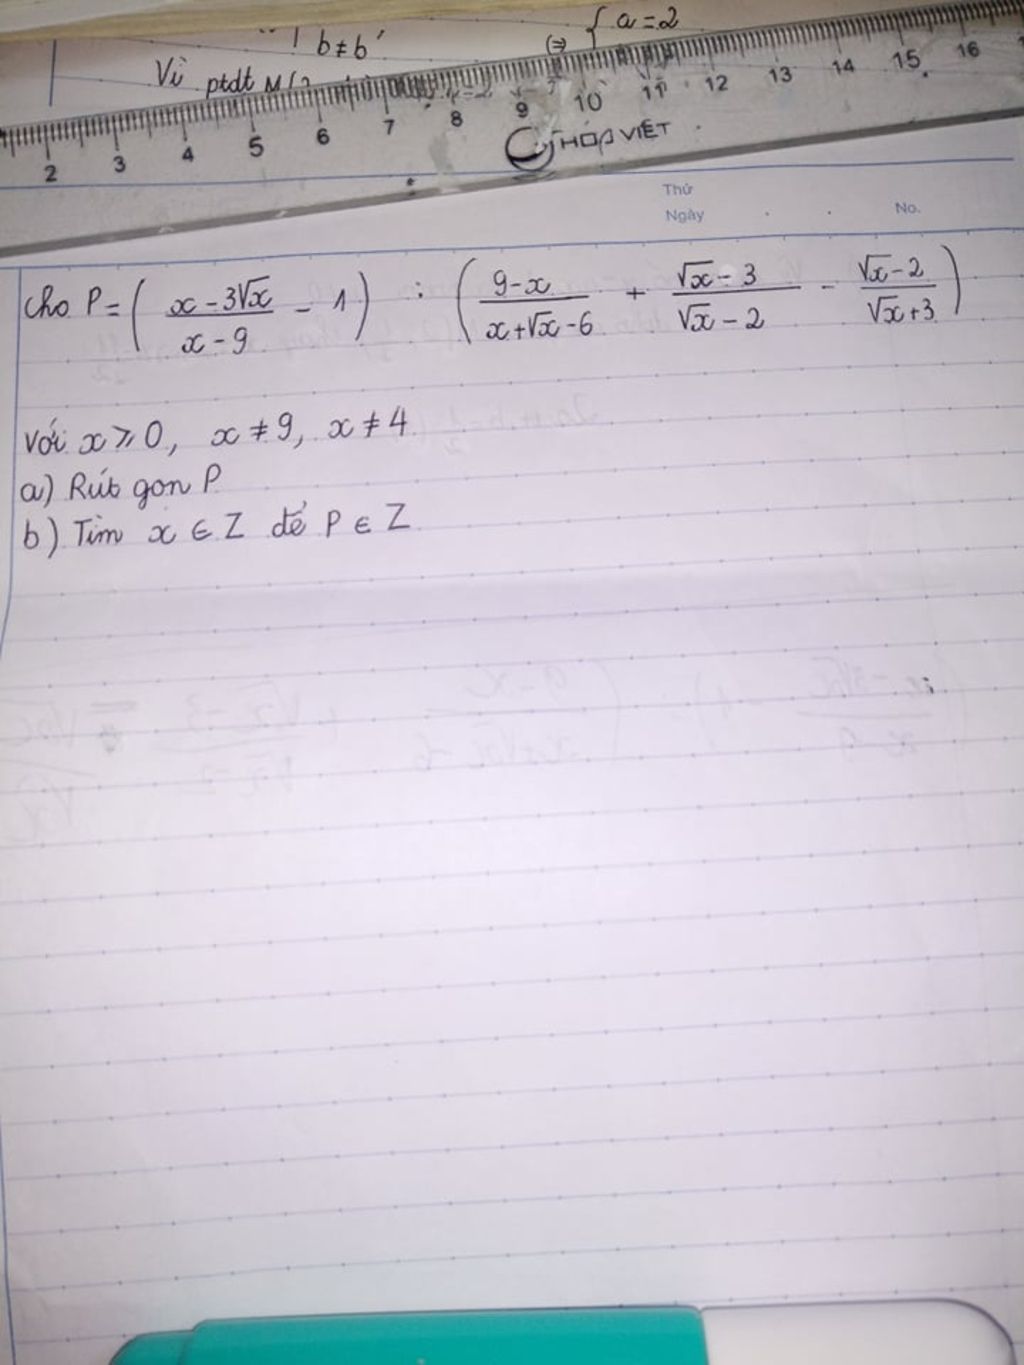 b ≠ b'
(=> { a = 2
Vì ptdt
2 3 4 5 6 7 8 9 10 11 12 13 14 15 16
Thứ
Ngày
No.
Cho P = ( \frac{x - 3√x}{x - 9} - 1 ) : ( \frac{9 - x}{x + √x - 6} + \frac{√x - 3}{√x - 2} - \frac{√x - 2}{√x + 3} )
Với x ⩾ 0, x ≠ 9, x ≠ 4
a) Rút gọn P
b) Tìm x ∈ Z để P ∈ Z